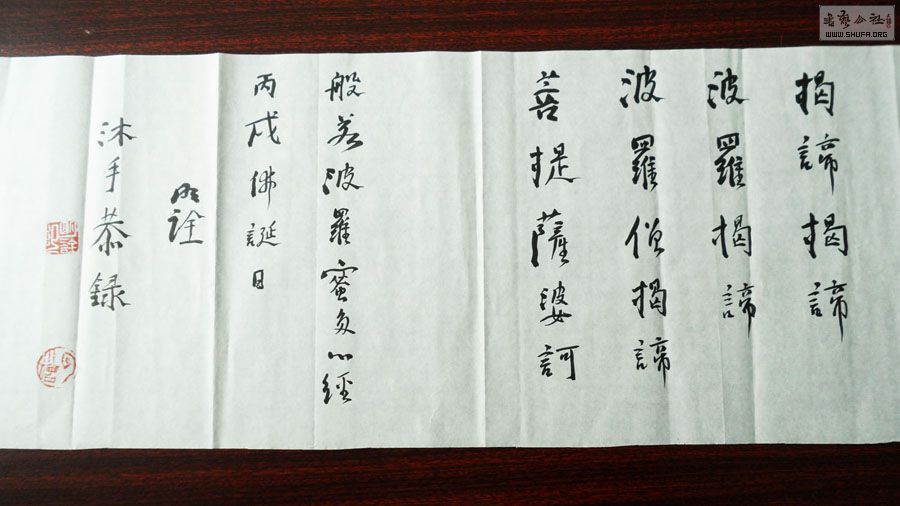 揭諦揭諦
波羅揭諦
波羅僧揭諦
菩提薩婆訶
般若波羅蜜多心經
丙戌佛誕日
明詮
沐手恭録
WWW.SHUFA.ORG